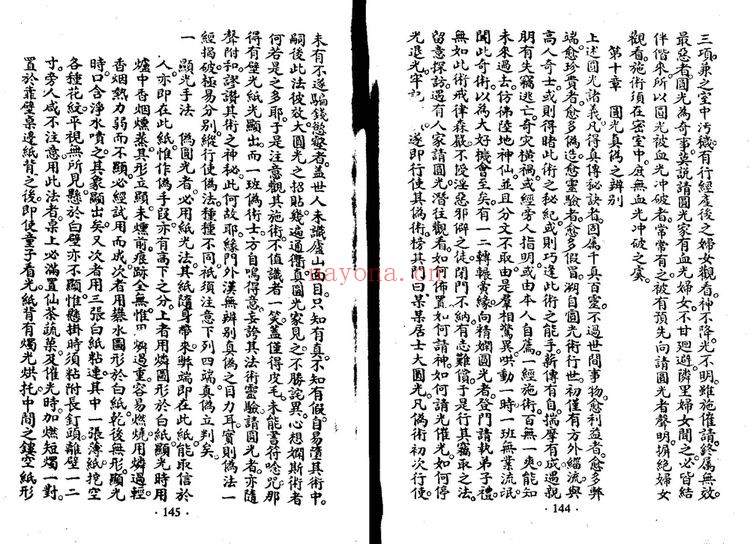 三項兼之室中汚穢有行經產後之婦女觀看神不降光不明雖施催請終屬無效
最惡者圓光為奇事莫說請圓光家有血光婦女不甘迴避隣里婦女聞之必皆結
伴偕來所以圓光被血光冲破者常常有之彼有預先向請圓光者聲明摒絕婦女
觀看施術須在密室中庶無血光冲破之虞
第十章 圓光真偽之辨別
上述圓光諸義凡得真傳秘訣者因屬千真百靈不過世間事物愈利益者愈多弊
端愈珍貴者愈多偽造愈靈驗者愈多假冒溯自圓光術行世初僅有方外緇流與
高人奇士或則得睹此術之秘紀或則巧逢此術之能手薪傳有自揣摩有成遇親
朋有失竊逃亡奇灾橫禍或經旁人指明或由本人自薦一經施術百無一爽能知
未來過去仿佛陸地神仙並且分文不取由是羣相驚異哄動一時一班無業流氓
聞此奇術以為大好機會至矣有一二轉輾夤緣向精嫻圓光者登門請執弟子禮
無如此術戒律森嚴不授淫惡邪僻之徒閉門不納有志難償于是行其竊取之法
留意探訪遇有人家請圓光潛往觀看如何佈置如何請神如何請光如何停
光退光牢 遂即行使其偽術榜其門曰某某居士大圓光凡偽術初次行使
·144·
未有不遂騙錢慾壑者蓋世人未識廬山面目只知有真不知有假自易墮其術中
嗣後此法彼放大圓光之招貼幾遍通衢真圓光家見之不勝詫異心想嫻斯術者
何若是之多耶于是注意觀其施術不值識者一笑蓋僅得皮毛未能書符唸咒那
得有壁光紙光顯出而一班偽術士方自鳴得意妄誇其法術靈驗請圓光者亦隨
聲附和謬讚其術之神秘此何故耶緣門外漢無辨別真偽之目力耳實則偽法一
經揭破極易分別縱行使偽法種種不同祇須注意下列四端真偽立判矣
一 顯光手法 偽圓光者必用紙光法其紙隨身帶來弊端即在此紙能取信於
人亦即在此紙惟作偽手段亦有高下之分上者用燐圓形於白紙顯光時用
爐中香烟燻蒸其形立顯未燻前痕跡全無惟 燐過重容易燃燒用燐過輕
香烟熱力弱而不顯必經試用而成次者用礬水圓形於白紙乾後無形顯光
時口含淨水噴之其象顯出矣又次者用三張白紙粘連其中一張薄紙挖空
各種花紋平視無所見懸於白壁亦不顯惟懸掛時須粘附長釘頭離壁一二
寸旁人咸不注意用此法者桌上必滿置仙茶蔬菜及催光時加燃短燭一對
置於靠壁桌邊紙背之後即使童子看光紙背有燭光烘托中間之鏤空紙形
·145·
nayona.cn